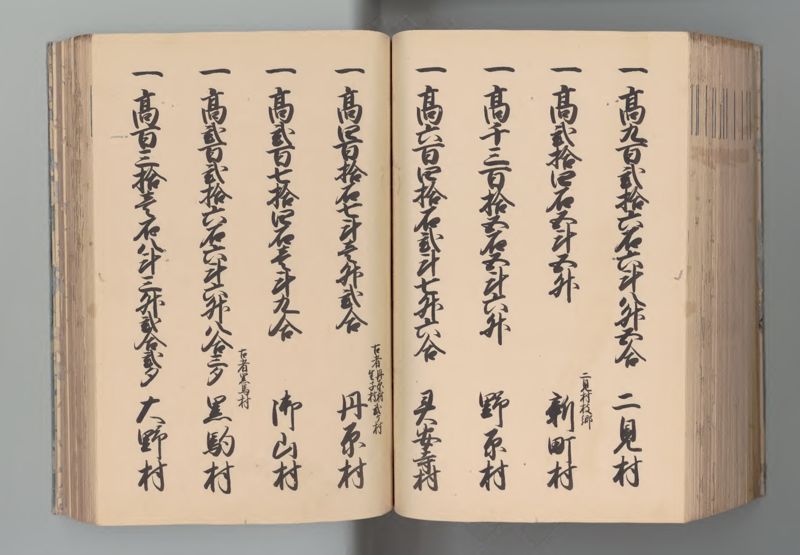 一 高九百弐拾六石六斗八升四合 二見村
一 高弐拾四石五斗五升
二見村枝郷
新町村
一 高千三百拾五石五斗六升 野原村
一 高六百四拾石弐斗七升六合 安寺村
一 高四百拾石七斗壱升弐合
古者丹原村
弐ケ村
丹原村
一 高弐百七拾四石壱斗九合 御山村
一 高弐百弐拾六石六斗六升八合三夕
古者黒馬村
黒駒村
一 高百三拾壱石八斗三升弐合弐夕 大野村